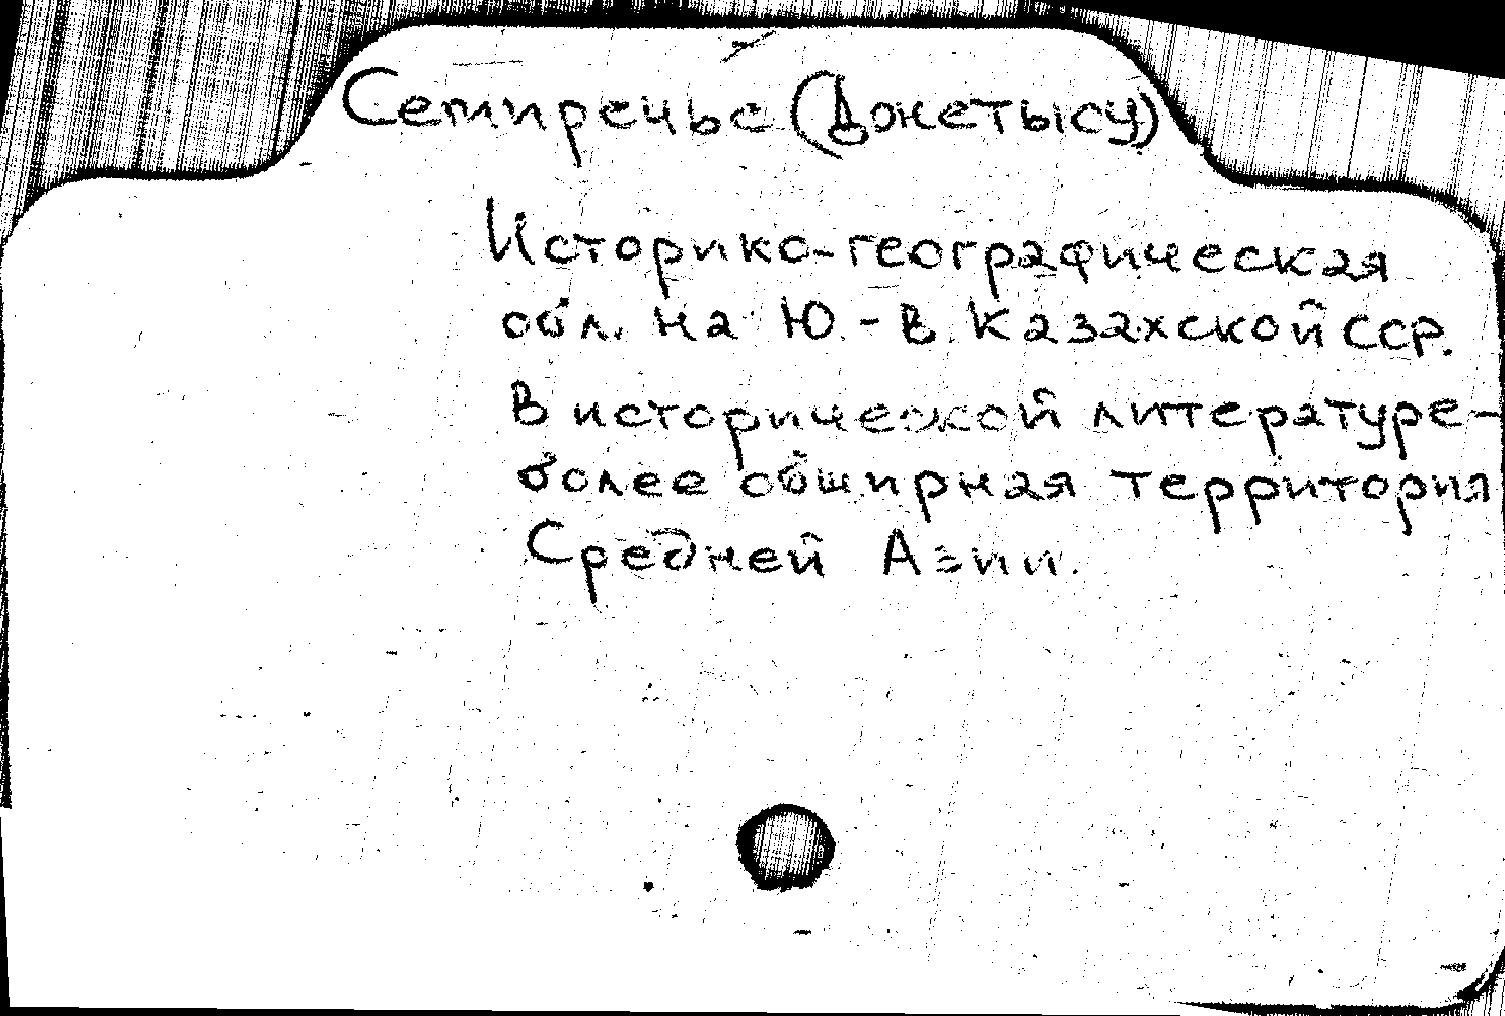 Семиречье (Джетысу)
Историко-географическая
обл. на Ю-В Казахской ССР.
В исторической литературе-
более обширная территория
Средней Азии.